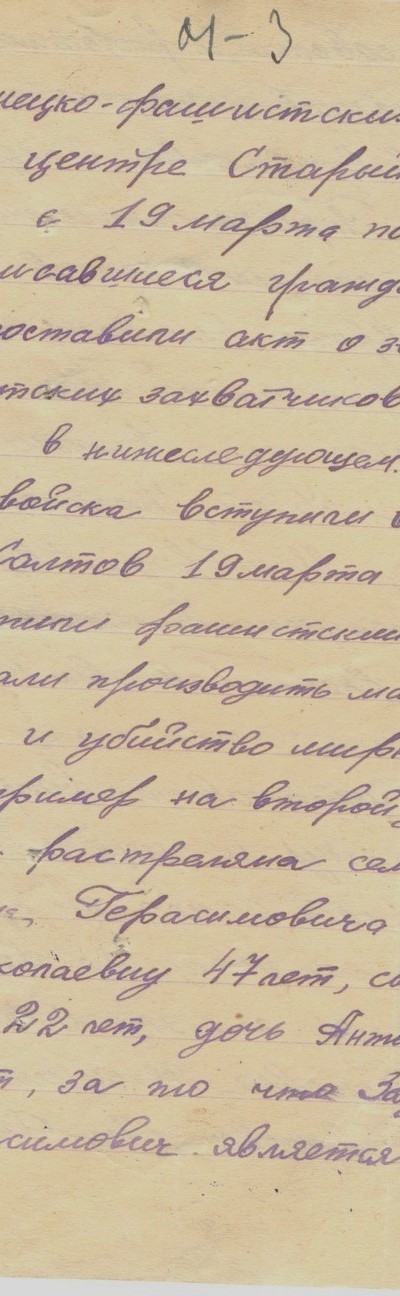 01-3
нецко-фашистски
центре Старый
с 19 марта по
исавшиеся гражд
оставили акт о з
тских захватчиков
в нижеследующем.
войска вступили
Салтов 19 марта
нили фашистским
али производить ма
и убийство мирн
ример на второй
растреляна сем
Герасимовича
колаевну 47 лет, с
22 лет, дочь Анто
т, за то что За
симович является